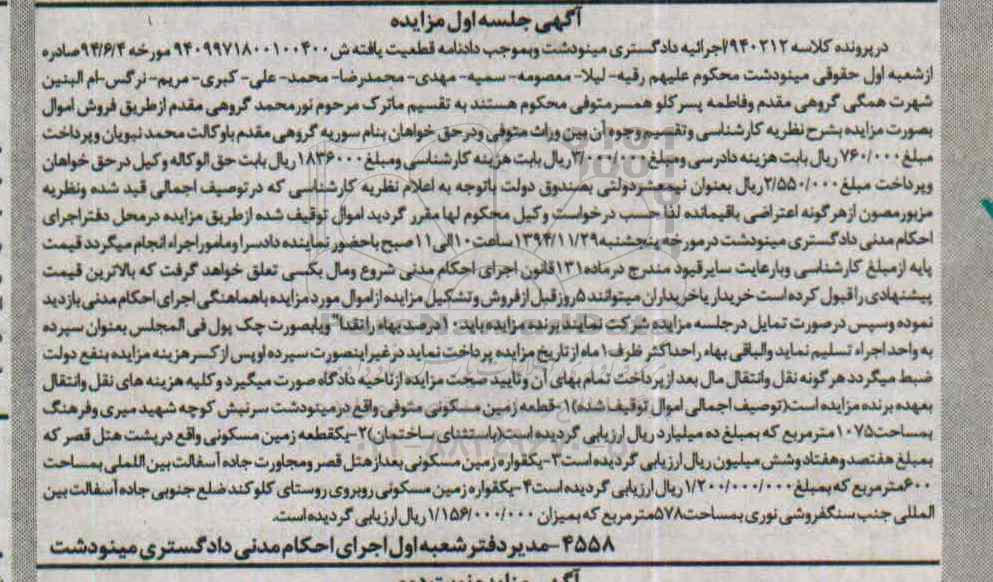 آگهی جلسه اول مزایده
درپرونده کلاسه ۹۴۰۲۱۲/اجرائیه دادگستری مینودشت وبموجب دادنامه قطعیت یافته ش ۹۴۰۹۹۷۱۸۰۰۱۰۰۴۰۰ مورخه ۹۴/۶/۴صادره
ازشعبه اول حقوقی مینودشت محکوم علیهم رقیه- لیلا- معصومه- سمیه- مهدی- محمدرضا- محمد- علی- کبری- مریم- نرگس-ام البنین
شهرت همگی گروهی مقدم وفاطمه پسرکلو همسرمتوفی محکوم هستند به تقسیم ماترک مرحوم نورمحمد گروهی مقدم ازطریق فروش اموال
بصورت مزایده بشرح نظریه کارشناسی وتقسیم وجوه آن بین وراث متوفی ودرحق خواهان بنام سوریه گروهی مقدم باوکالت محمد نبویان وپرداخت
مبلغ ۷۶۰/۰۰۰ ریال بابت هزینه دادرسی ومبلغ۳/۰۰۰/۰۰۰ریال بابت هزینه کارشناسی ومبلغ ۱۸۳۶۰۰۰ ریال بابت حق الوکاله وکیل درحق خواهان
وپرداخت مبلغ ۲/۵۵۰/۰۰۰ریال بعنوان نیمعشردولتی بصندوق دولت باتوجه به اعلام نظریه کارشناسی که درتوصیف اجمالی قید شده ونظریه
مزبورمصون ازهرگونه اعتراضی باقیمانده لذا حسب درخواست وکیل محکوم لها مقرر گردید اموال توقیف شده ازطریق مزایده درمحل دفتراجرای
احکام مدنی دادگستری مینودشت درمورخه پنجشنبه۱۳۹۴/۱۱/۲۹ساعت۱۰الی۱۱صبح باحضورنماینده دادسرا وماموراجراء انجام میگردد قیمت
پایه ازمبلغ کارشناسی وبارعایت سایرقیود مندرج درماده۱۳۱قانون اجرای احکام مدنی شروع ومال بکسی تعلق خواهد گرفت که بالاترین قیمت
پیشنهادی راقبول کرده است خریدار یاخریداران میتوانند ۵روزقبل ازفروش وتشکیل مزایده ازاموال موردمزایده باهماهنگی اجرای احکام مدنی بازدید
نموده وسپس درصورت تمایل درجلسه مزایده شرکت نمایند برنده مزایده باید۱۰درصد بهاء را نقدا ویابصورت چک پول فی المجلس بعنوان سپرده
به واحد اجراء تسلیم نماید والباقی بهاء راحداکثر ظرف۱ماه ازتاریخ مزایده پرداخت نماید درغیراینصورت سپرده اوپس ازکسرهزینه مزایده بنفع دولت
ضبط میگردد هرگونه نقل وانتقال مال بعد ازپرداخت تمام بهای آن وتایید صحت مزایده ازناحیه دادگاه صورت میگیرد وکلیه هزینه های نقل وانتقال
بعهده برنده مزایده است(توصیف اجمالی اموال توقیف شده)۱-قطعه زمین مسکونی متوفی واقع درمینودشت سرنبش کوچه شهید میری وفرهنگ
بمساحت۱۰۷۵ مترمربع که بمبلغ ده میلیارد ریال ارزیابی گردیده است(باستثنای ساختمان)۲-یکقطعه زمین مسکونی واقع درپشت هتل قصر که
بمبلغ هفتصدوهفتادوشش میلیون ریال ارزیابی گردیده است۳-یکقواره زمین مسکونی بعدازهتل قصر ومجاورت جاده آسفالت بین المللی بمساحت
۶۰۰مترمربع که بمبلغ ۱/۲۰۰/۰۰۰/۰۰۰ریال ارزیابی گردیده است۴-یکقواره زمین مسکونی روبروی روستای کلوکند ضلع جنوبی جاده آسفالت بین
المللی جنب سنگفروشی نوری بمساحت۵۷۸مترمربع که بمیزان ۱/۱۵۶/۰۰۰/۰۰۰ ریال ارزیابی گردیده است.
۴۵۵۸-مدیردفترشعبه اول اجرای احکام مدنی دادگستری مینودشت